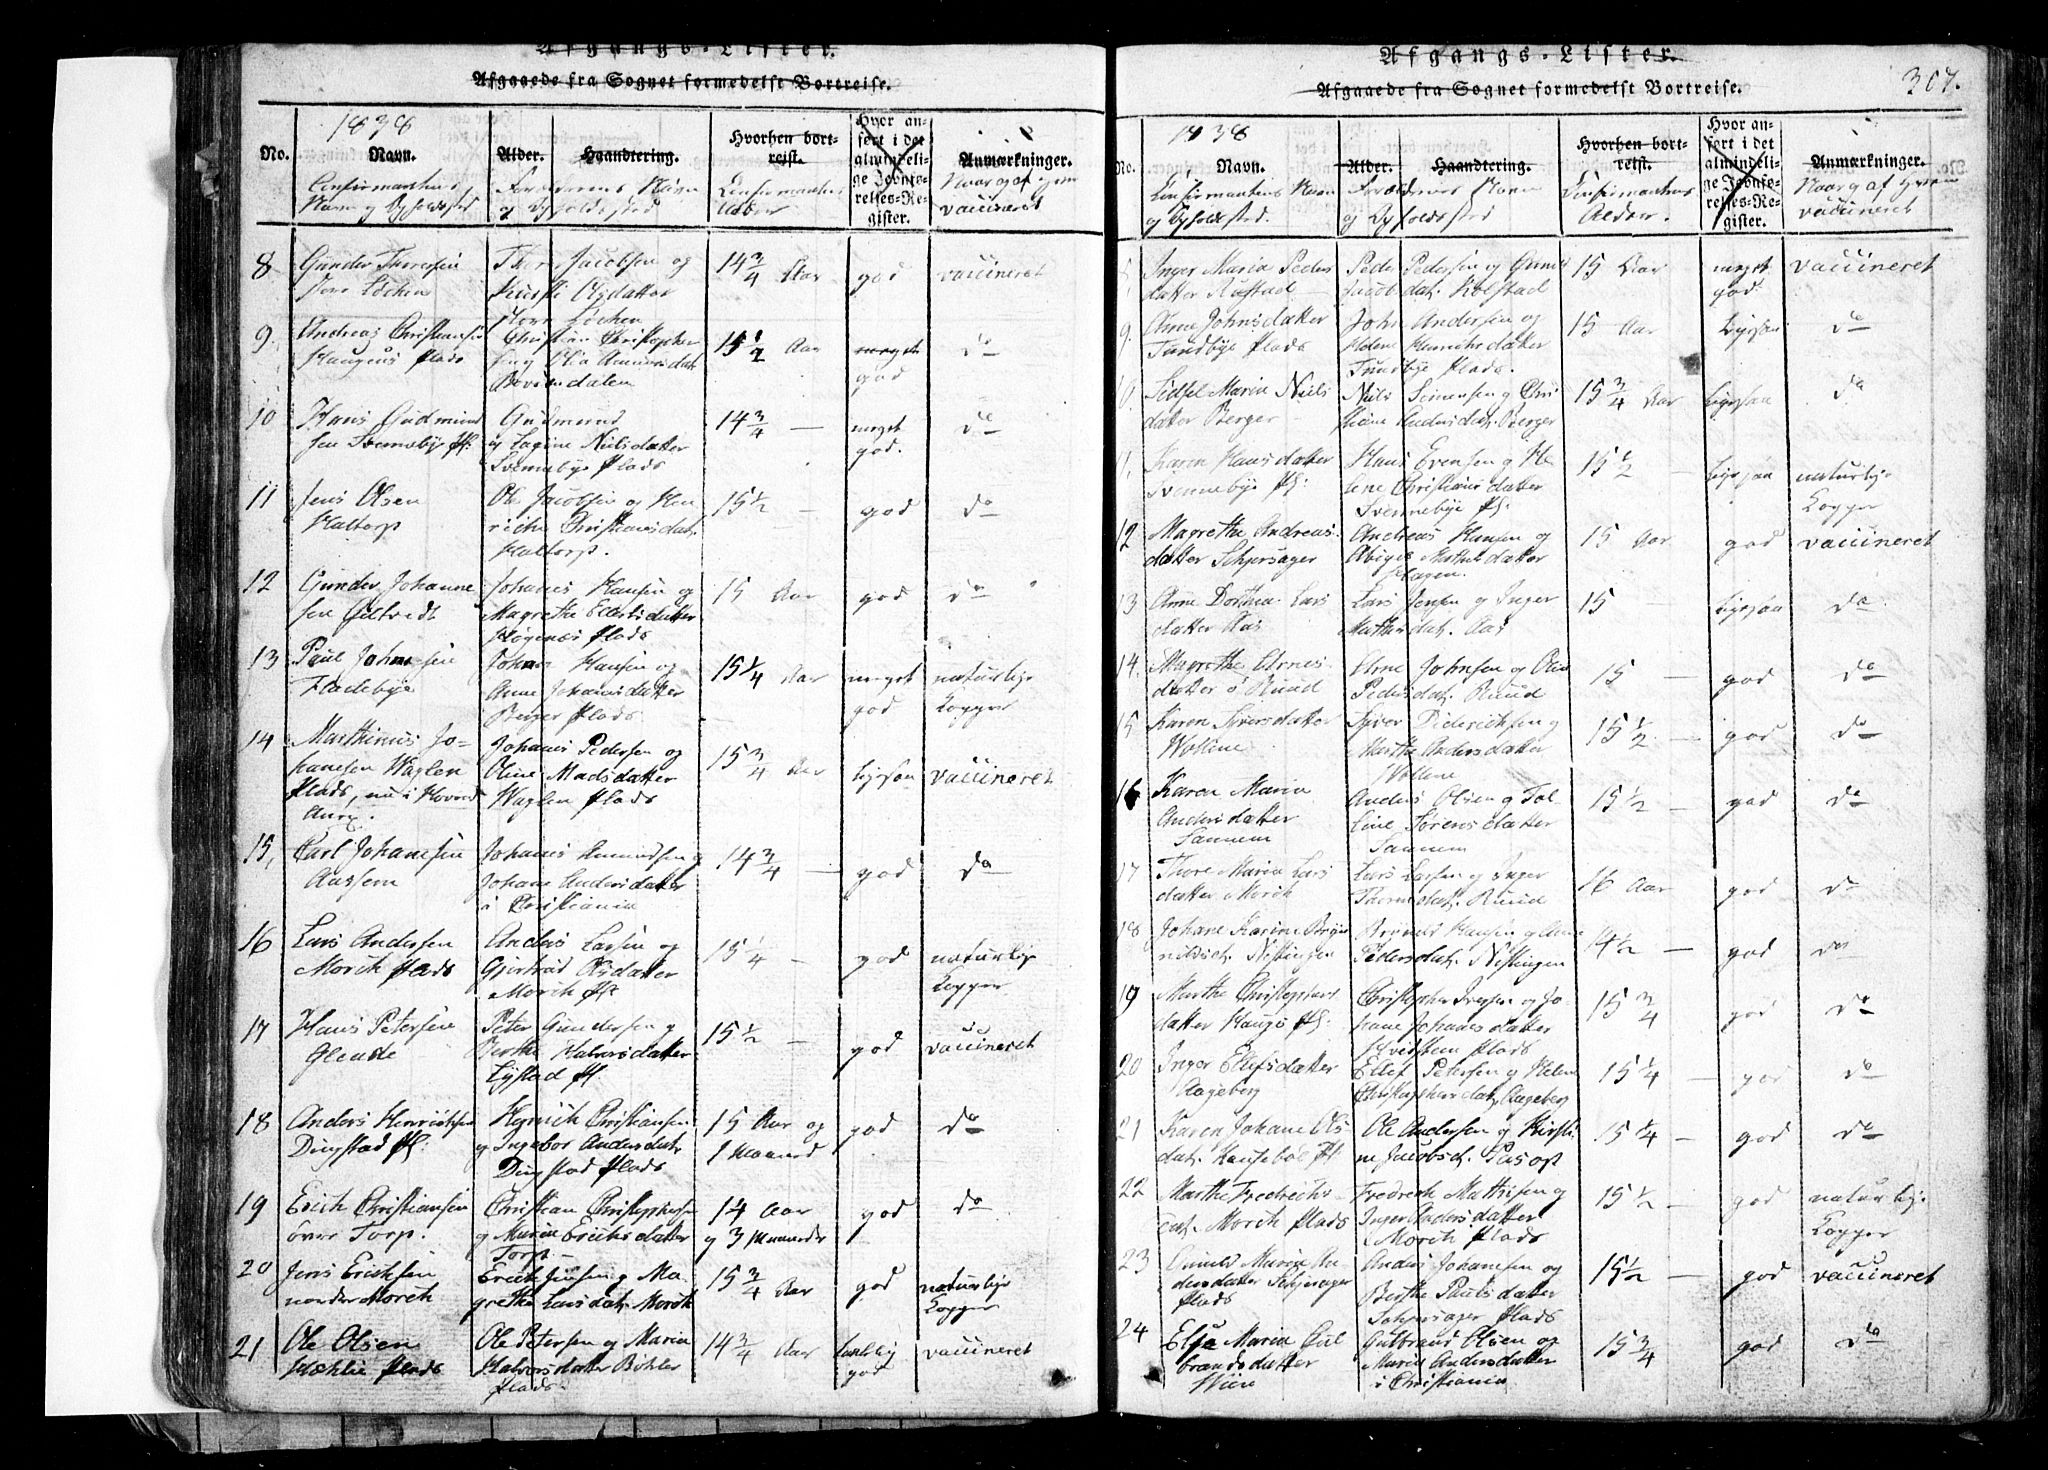 Afgangs-Lister.
Afgaaede fra Sognet formedelst Bortreise.
1838
No.
Navn.
Alder.
Haandtering.
Hvorhen bort-
reist.
Hvor an-
ført i det
almindeli-
ge Jevnfø-
relses-Re-
gister.
Anmærkninger.
Confirmantens
Navn og Opholdsted
Forældrenes Navn
og Opholdssted
Confirmantens
Alder
Naar og af hvem
vaccineret
8
Gunder Thoresen
Thore Jacobsen og
Kirsti Olsdatter
14 3/4 Aar
god
vaccineret
9.
Andreas Christiansen
Haugens Plads
Christian Christopher
sen og
15 1/2 Aar
god
do
10
Hans Gudmund
sen Svennebye Pl:
Gudmund
og Nielsdatter
Svennebye Plads
14 3/4 —
meget
god.
do
11
Jens Olsen
Haltorp
Ole Jacobsen og Hen
riche Christiansdat.
Haltorp.
15 1/2 —
god
do
12
Gunder Johanne
sen
Johanes Hansen og
Magrethe Ellertsdatter
Plads
15 Aar
god
do
13
Paul Johnsen
Fladebye
Johns Hansen og
Anne Johansdatter
Berger Plads
15 1/4 Aar
meget
god
naturlige
Kopper
14
Marthinus Jo-
hanesen Waglen
Plads, nu i
Johanes Pedersen og
Oline Madsdatter
Waglen Plads
15 3/4 Aar
ligesaa
vaccineret
15,
Carl Johanesen
Aussem
Johanes Amundsen og
Johane Andersdatter
i Christiania
14 3/4 —
god
do
16
Lars Andersen
Morch Plads
Anders Larsen og
Gjertrud Olsdatter
Morch Pl:
15 1/4 —
god
naturlige
Kopper
17
Hans Petersen
Glende
Peter Gundersen og
Berthe Halvorsdatter
Lystad Pl.
15 1/2 —
god
vaccineret
18
Anders Henrichsen
Dingstad Pl.
Henrich Christiansen
og Ingebor Andersdat.
Dingstad Plads
15 Aar og
1 Maaned
god
do
19
Erich Christiansen
över Torp.
Christian Christophersen
og Maria Erichsdatter
Torp —
14 Aar
og 3 Maaneder
god
do
20
Jens Erichsen
nordre Morch
Erich Jensen og Ma-
grethe Larsdat. Morch
15 3/4 Aar
god
naturlige
Kopper
21
Ole Olsen
Plads
Ole Petersen og Maria
Halvorsdatter Böhler
Plads.
14 3/4 Aar
god
vaccineret
Afgangs-Lister.
Afgaaede fra Sognet formedelst Bortreise.
307.
1838
No.
Navn.
Alder.
Haandtering.
Hvorhen bort-
reist.
Hvor an-
ført i det
almindeli-
ge Jevnfø-
relses-Re-
gister.
Anmærkninger.
Confirmantens Navn
og Opholdsted.
Forældrenes Navn
og Opholdssted
Confirmantens
Alder.
Naar og af hvem
vaccineret
8
Inger Maria Peders
datter Rustad
Peder Pedersen og
Jacobsdat. Kolstad
15 Aar
meget
god.
vaccineret
9.
Anne Johnsdatter
Tundbye Plads
John Andersen og
Helene Henrichsdatter
Tundbye Plads.
15 Aar
ligesaa
do
10.
Sidsel Maria Niels
datter Berger
Niels Sörensen og Chri
stiane Andersdat. Berger
15 3/4 Aar
ligesaa
do
11.
Karen Hansdatter
Svennebye Pl:
Hans Evensen og He
lene Christiansdatter
Svennebye Pl.
15 1/2 —
ligesaa
naturlige
Kopper
12
Magrethe Andreas
datter Schjersager
Andreas Hansen og
Abigel
Hagen.
15 Aar
god
vaccineret
13
Anne Dorthea Lars
datter Aas
Lars Jensen og Inger
Mathisdat. Aas
15 —
ligesaa
do
14.
Magrethe Arnes-
datter ö Ruud
Arne Johnsen og
Pedersdat. Ruud
15 —
god
do
15
Karen Siversdatter
Wollene
Siver Diderichsen og
Marthe Andersdatter
Wollene
15 1/2 —
god
do
16
Karen Maria
Andersdatter
Sannem
Anders Olsen og Tol-
line Sörensdatter
Sannem
15 1/2 —
god
do
17
Thore Maria Lars
datter Morch
Lars Larsen og Inger
Thoresdat. Ruud
16 Aar
god
do
18
Johane Karine Bryn
nildsdt. Nistingen
Hansen og Anne
Pedersdat. Nistingen
14 1/2 —
god
do
19
Marthe Christophers
datter Haugs Pl:
Christopher Iversen og Jo-
hane Johanesdatter
Hvidsteen Plads
15 3/4 —
god
do
20
Inger Ellefsdatter
Aageberg
Ellef Petersen og Helene
Christophersdat. Aageberg
15 1/4 —
god
do
21
Karen Johane Ols
dat. Pl
Ole Andersen og Kirsti
ne Jacobsd.
15 1/4 —
god
do
22
Marthe Fredrichs
dat. Morch Plads
Fredrich Mathisen og
Inger Andersdatter
Morch Plads
15 1/2 —
god
naturlige
Kopper
23
Maria An-
dersdatter Schjersager
Plads
Anders Johanesen og
Berthe Paulsdatter
Schjersager Plads
15 1/2 —
god
vaccineret
24
Else Maria Gul
brandsdatter
Wiin
Gulbrand Olsen og
Maria Andersdatter
i Christiania
15 3/4 —
god
do